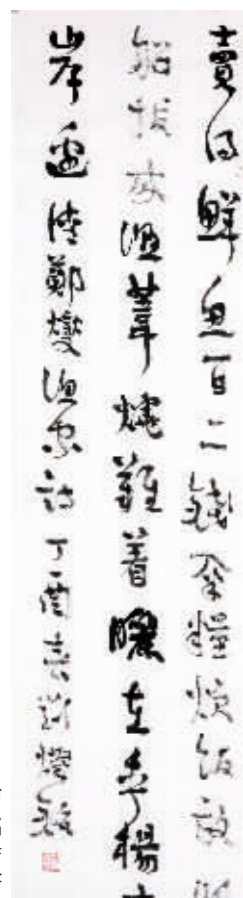 賣得鮮魚百二錢糴糧炊飯放
船拔來濕葦燒難着曬在垂楊
岸邊 鄭燮漁家詩 丁酉春